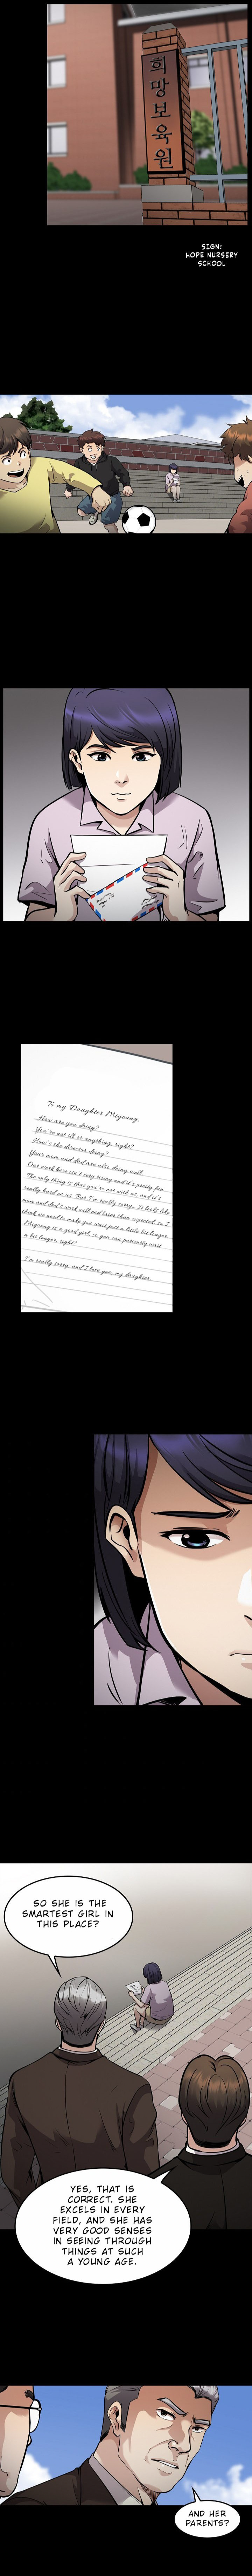 희망보육원
SIGN:
HOPE NURSERY
SCHOOL
To my Daughter Miyoung,
How are you doing?
You're not ill or anything, right?
How's the director doing?
Your mom and dad are also doing well.
Our work here isn't very tiring and it's pretty fun.
The only thing is that you're not with us, and it's
really hard on us. But I'm really sorry.. It looks like
mom and dad's work will end later than expected, so I
think we need to make you wait just a little bit longer.
Miyoung is a good girl, so you can patiently wait
a bit longer, right?
I'm really sorry, and I love you, my daughter.
SO SHE IS THE
SMARTEST GIRL IN
THIS PLACE?
YES, THAT IS
CORRECT. SHE
EXCELS IN EVERY
FIELD, AND SHE HAS
VERY GOOD SENSES
IN SEEING THROUGH
THINGS AT SUCH
A YOUNG AGE.
AND HER
PARENTS?